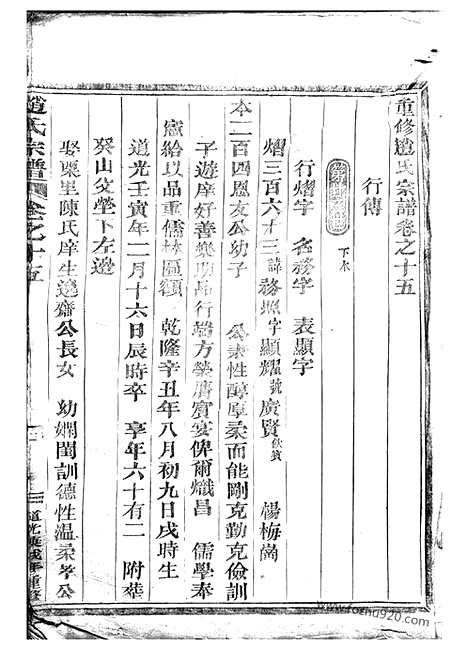 重修趙氏宗譜卷之十五
行傳
下水
行熠字 名務字 表顯字
熠三百六十三諱務照字顯耀號廣賢飲賓 楊梅崗
本二百四恩友公幼子 公秉性醇厚柔而能剛克勤克儉訓
子遊庠好善樂助品行端方榮膺賓宴俾爾熾昌 儒學奉
憲給以品重儒林匾額 乾隆辛丑年八月初九日戌時生
道光壬寅年二月十六日辰時卒 享年六十有二 附葬
癸山父塋下左邊
娶栗里陳氏庠生遠齋公長女 幼嫻閨訓德性溫柔孝公
趙氏宗譜 卷之十五
一
道光庚戌年重修
www.fozhu920.com